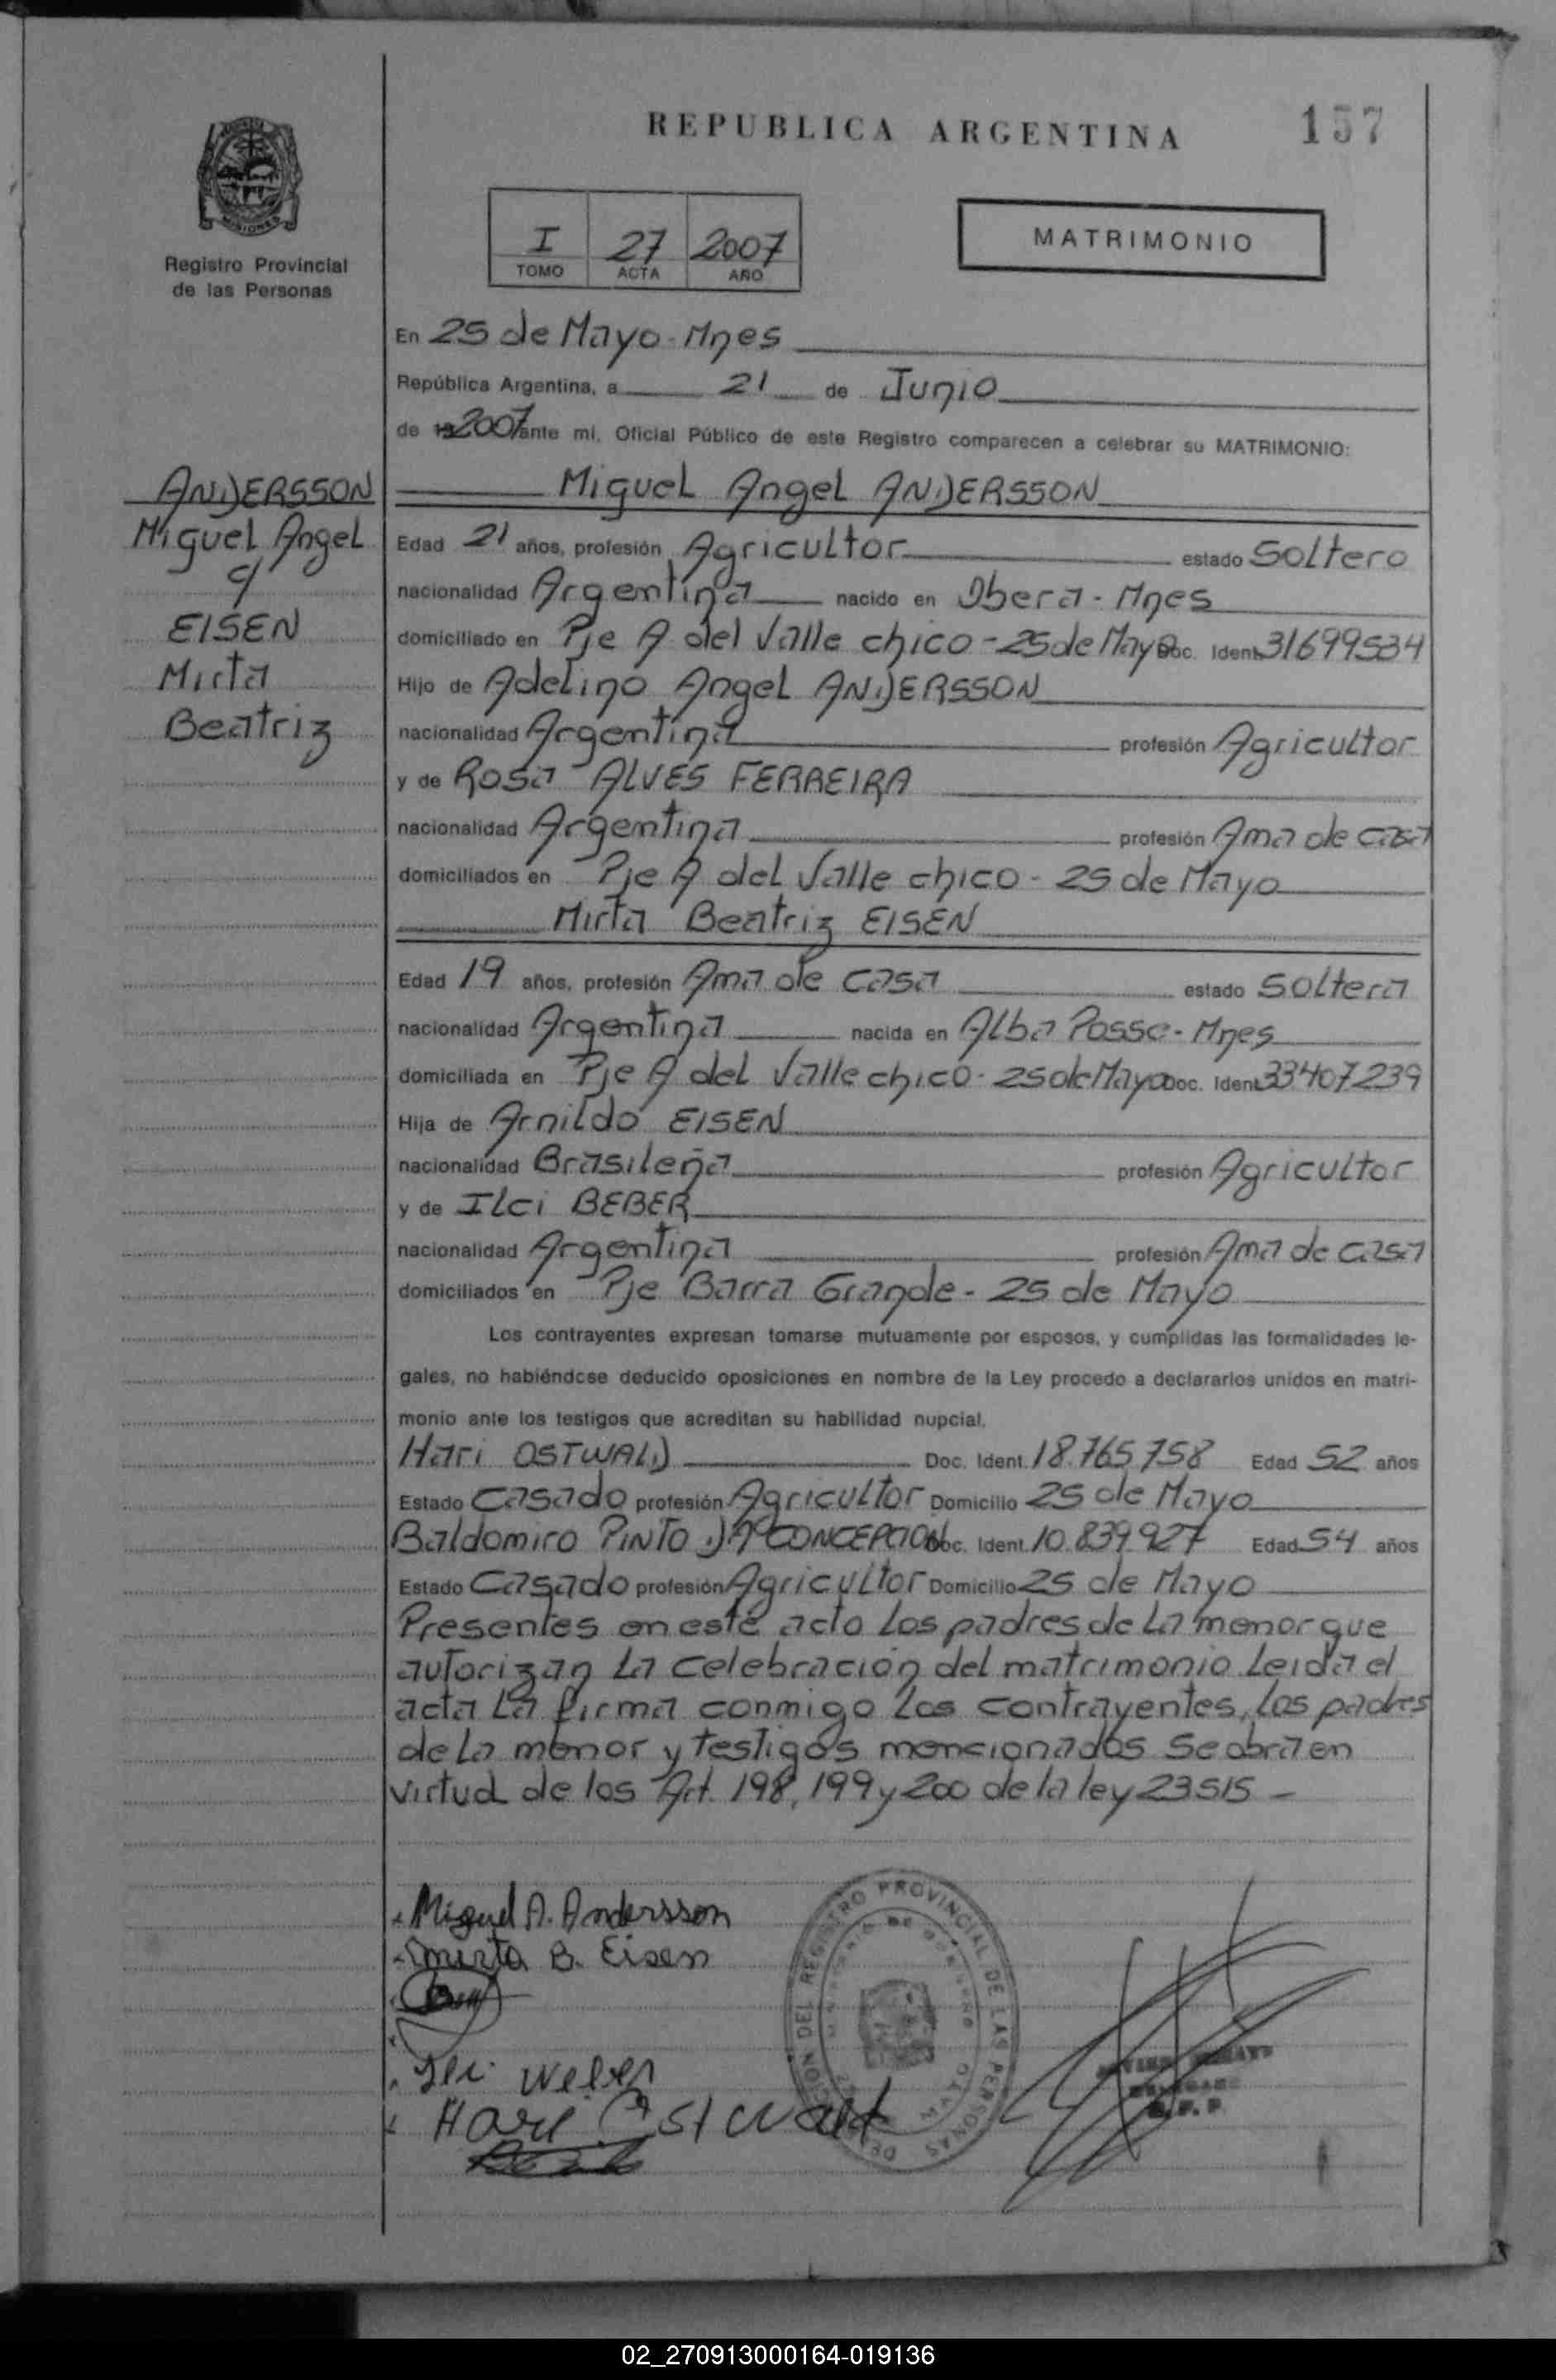 REPUBLICA ARGENTINA
157
MISIONES
Registro Provincial
de las Personas
I 27 2007
TOMO ACTA AÑO
MATRIMONIO
En 25 de Mayo - Mnes
República Argentina, a 21 de Junio
de 19 2007 ante mi, Oficial Público de este Registro comparecen a celebrar su MATRIMONIO:
ANDERSSON
Miguel Angel
c/
EISEN
Mirta
Beatriz
Miguel Angel ANDERSSON
Edad 21 años, profesión Agricultor estado Soltero
nacionalidad Argentina nacido en Obera - Mnes
domiciliado en Pje A del Valle chico - 25 de Mayo Doc. Ident. 31699534
Hijo de Adelino Angel ANDERSSON
nacionalidad Argentina profesión Agricultor
y de Rosa ALVES FERREIRA
nacionalidad Argentina profesión Ama de casa
domiciliados en Pje A del Valle chico - 25 de Mayo
Mirta Beatriz EISEN
Edad 19 años, profesión Ama de casa estado Soltera
nacionalidad Argentina nacida en Alba Posse - Mnes
domiciliada en Pje A del Valle chico - 25 de Mayo Doc. Ident. 33407239
Hija de Arnildo EISEN
nacionalidad Brasileña profesión Agricultor
y de Ilci BEBER
nacionalidad Argentina profesión Ama de casa
domiciliados en Pje Barra Grande - 25 de Mayo
Los contrayentes expresan tomarse mutuamente por esposos, y cumplidas las formalidades le-
gales, no habiéndose deducido oposiciones en nombre de la Ley procedo a declararlos unidos en matri-
monio ante los testigos que acreditan su habilidad nupcial.
Hari OSTWALD Doc. Ident. 18.765.758 Edad 52 años
Estado Casado profesión Agricultor Domicilio 25 de Mayo
Baldomiro PINTO D Aº CONCEPCION Doc. Ident. 10.839.927 Edad 54 años
Estado Casado profesión Agricultor Domicilio 25 de Mayo
Presentes en este acto los padres de la menor que
autorizan la celebración del matrimonio. Leida el
acta la firma conmigo los contrayentes, los padres
de la menor y testigos mencionados se obra en
virtud de los Art. 198, 199 y 200 de la ley 23515 -
Miguel A. Andersson
Mirta B. Eisen
Ilci Weber
Hari Ostwald
DEL REGISTRO PROVINCIAL DE LAS PERSONAS
02_270913000164-019136